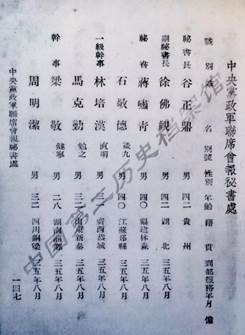 中央黨政軍聯席會報秘書處
職別 姓名 別號 性別 年齡 籍貫 到部服務年月 備
秘書長 谷正鼎 男 四二 貴州
副秘書長 徐佛觀 男 四二 湖北
秘書 蔣嘯青 男 四〇 福建林森 三五年八月
石敬德 男 四〇 江蘇 三五年八月
一級幹事 林培漢 直明 男 三一 三五年八月
馬克勤 男 三一 山東新泰 三五年八月
幹事 梁敬 男 三五年八月
周明潔 男 三二 四川銅梁 三五年八月
中央黨政軍聯席會報秘書處
一四七
中国第二历史档案馆